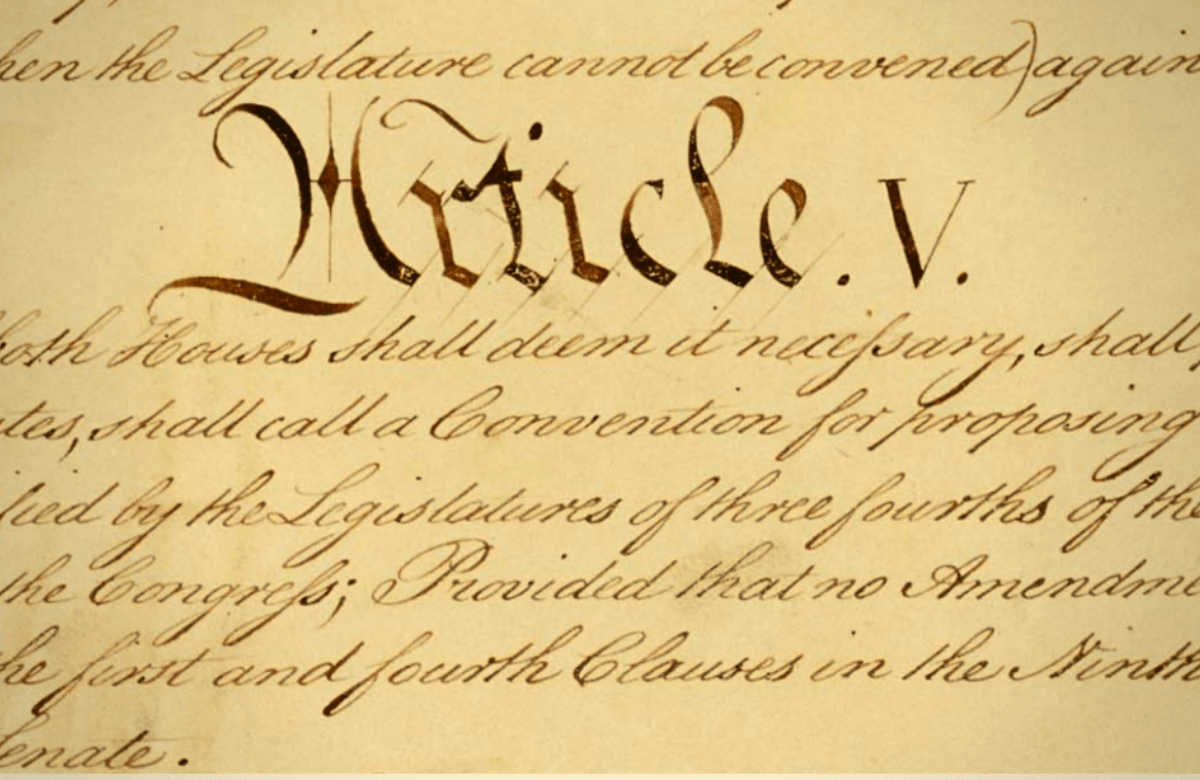 hen the Legislature cannot be convened) again
Article. V.
both Houses shall deem it neceſsary, shall
tes, shall call a Convention for proposing
fied by the Legislatures of three fourths of the
the Congreſs; Provided that no Amendme
he first and fourth Clauses in the Ninth
Senate.